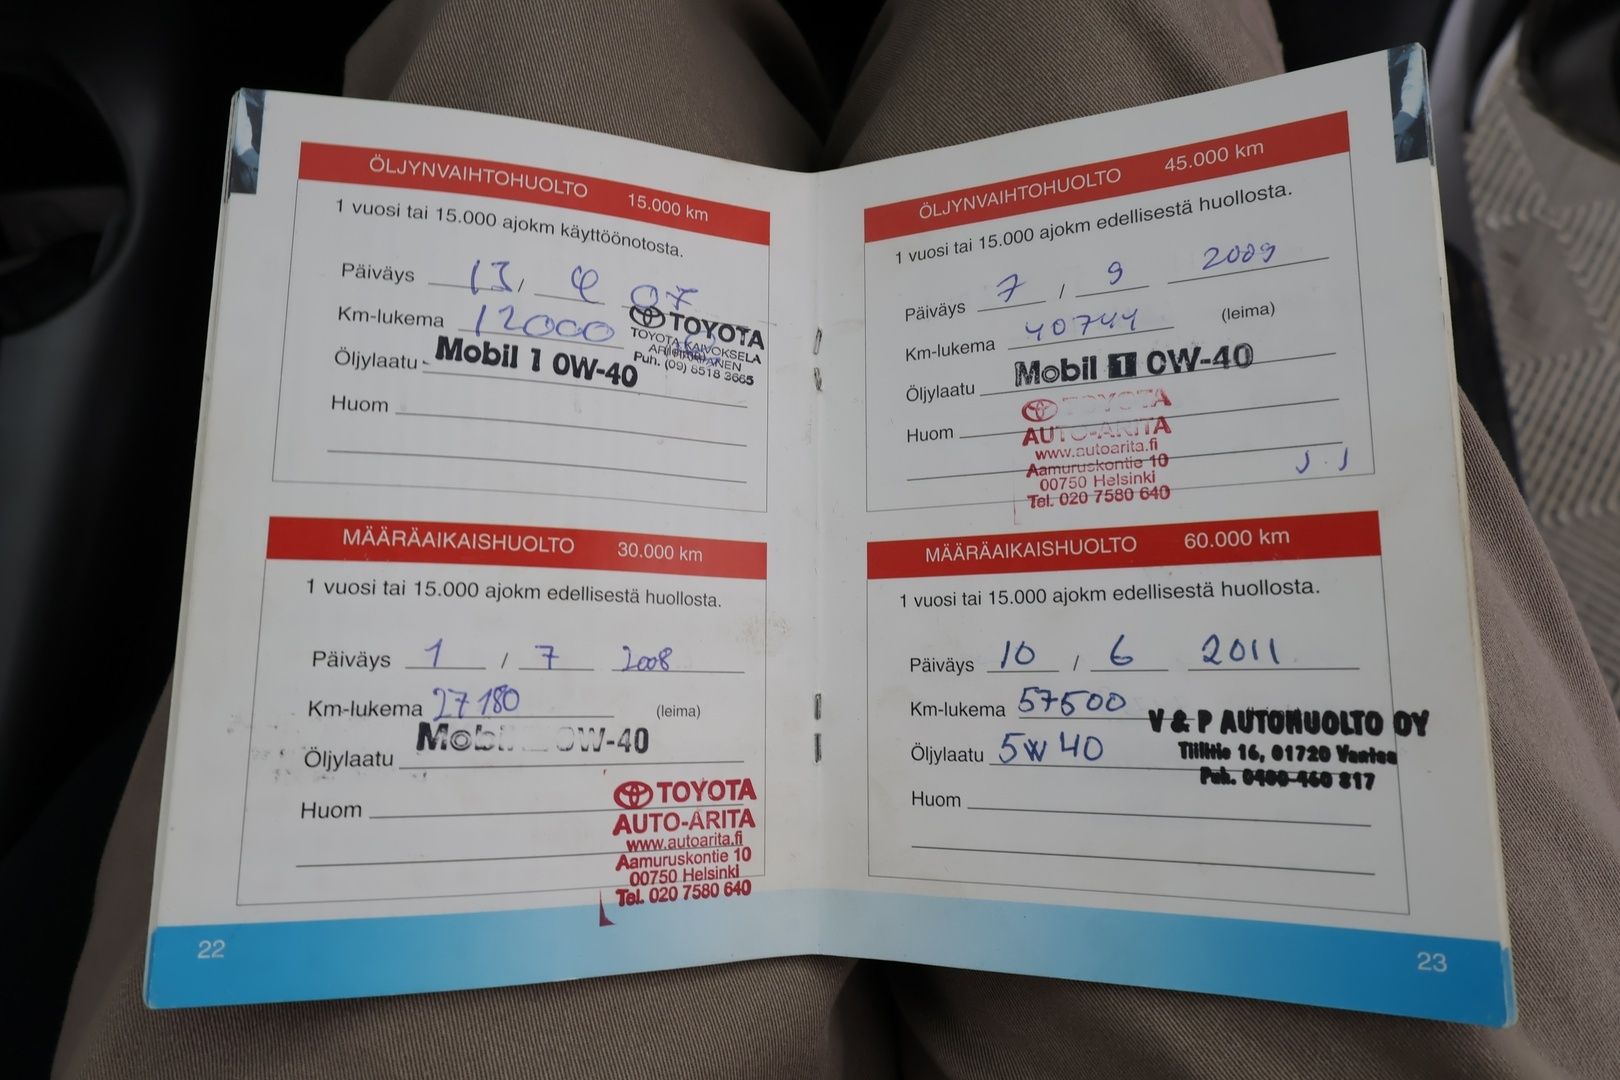 ÖLJYNVAIHTOHUOLTO 15.000 km
1 vuosi tai 15.000 ajokm käyttöönotosta.
Päiväys 13 / 4 07
Km-lukema 12000
TOYOTA
TOYOTA KAIVOKSELA
Puh. (09) 8518 3665
Öljylaatu Mobil 1 0W-40
Huom
MÄÄRÄAIKAISHUOLTO 30.000 km
1 vuosi tai 15.000 ajokm edellisestä huollosta.
Päiväys 1 / 7 2008
Km-lukema 27180 (leima)
Öljylaatu Mobil 0W-40
Huom
TOYOTA
AUTO-ARITA
www.autoarita.fi
Aamuruskontie 10
00750 Helsinki
Tel. 020 7580 640
22
ÖLJYNVAIHTOHUOLTO 45.000 km
1 vuosi tai 15.000 ajokm edellisestä huollosta.
Päiväys 7 / 9 2009
Km-lukema 40744 (leima)
Öljylaatu Mobil 1 0W-40
Huom
TOYOTA
AUTO-ARITA
www.autoarita.fi
Aamuruskontie 10
00750 Helsinki
Tel. 020 7580 640
J.J
MÄÄRÄAIKAISHUOLTO 60.000 km
1 vuosi tai 15.000 ajokm edellisestä huollosta.
Päiväys 10 / 6 2011
Km-lukema 57500
Öljylaatu 5W40
V & P AUTOHUOLTO OY
Tiilitie 16, 01720 Vantaa
Puh. 0400 460 817
Huom
23